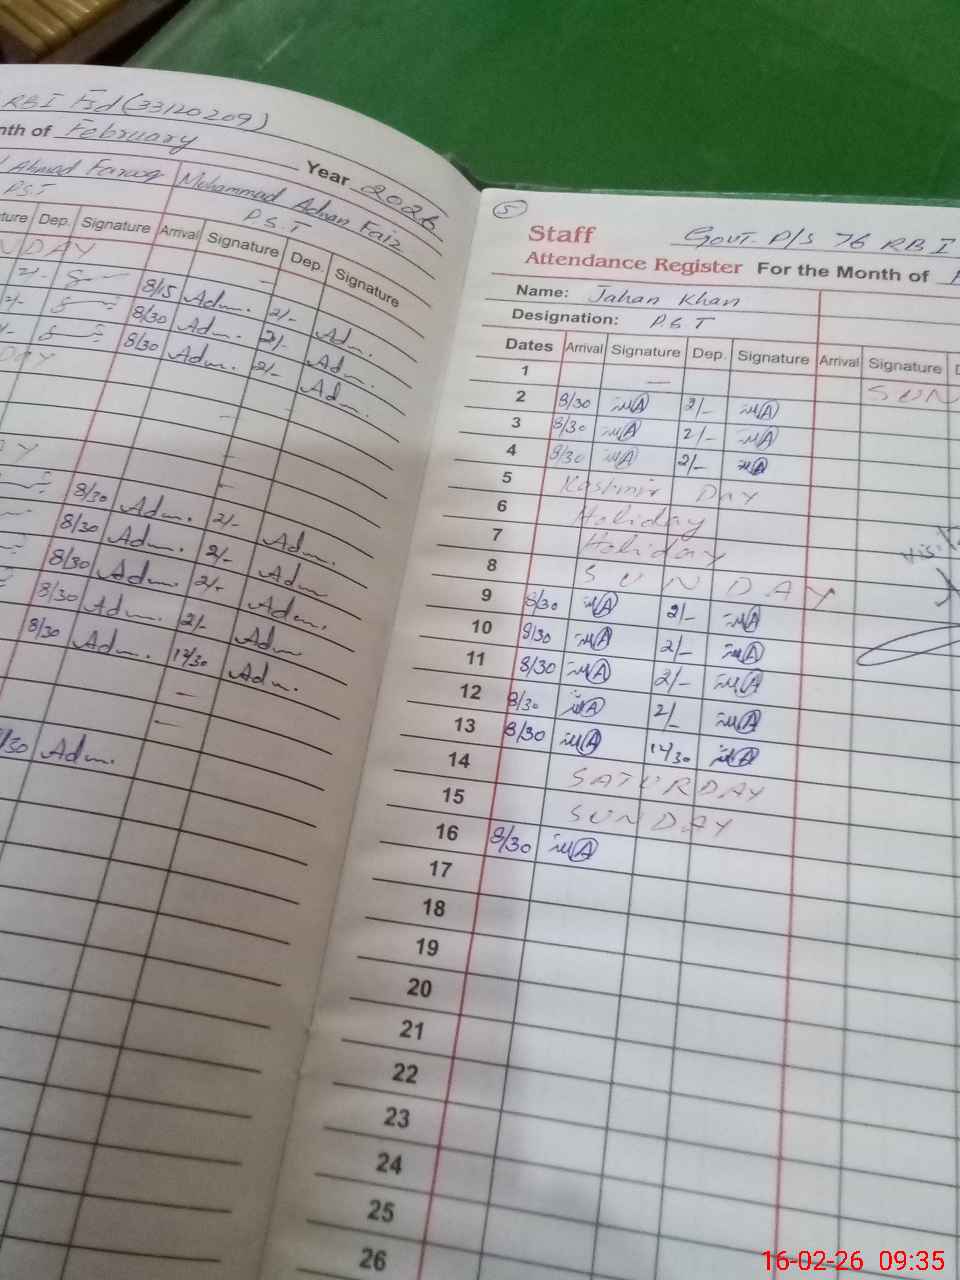 RBI Fsd (33120209)
nth of February Year 2026
Ahmad Farooq Muhammad Adnan Faiz
P.S.T P.S.T
ture Dep. Signature Arrival Signature Dep. Signature
NDAY
2/- 8/15 Adn. 2/- Adn.
2/- 8/30 Adn. 2/- Adn.
/- 8/30 Adn. 2/- Adn.
DAY
Y
8/30 Adn. 2/- Adn.
8/30 Adn. 2/- Adn.
8/30 Adn. 2/- Adn.
8/30 Adn. 2/- Adn.
8/30 Adn. 12/30 Adn.
/30 Adn.
5
Staff Govt. P/S 76 RB I
Attendance Register For the Month of
Name: Jahan Khan
Designation: P.S.T
Dates Arrival Signature Dep. Signature Arrival Signature D
1 SUN
2 8/30 2/-
3 8/30 2/-
4 8/30 2/-
5 Kashmir Day
6 Holiday
7 Holiday
8 SUNDAY
9 8/30 2/-
10 8/30 2/-
11 8/30 2/-
12 8/30 2/-
13 8/30 12/30
14 SATURDAY
15 SUNDAY
16 8/30
17
18
19
20
21
22
23
24
25
26
16-02-26 09:35